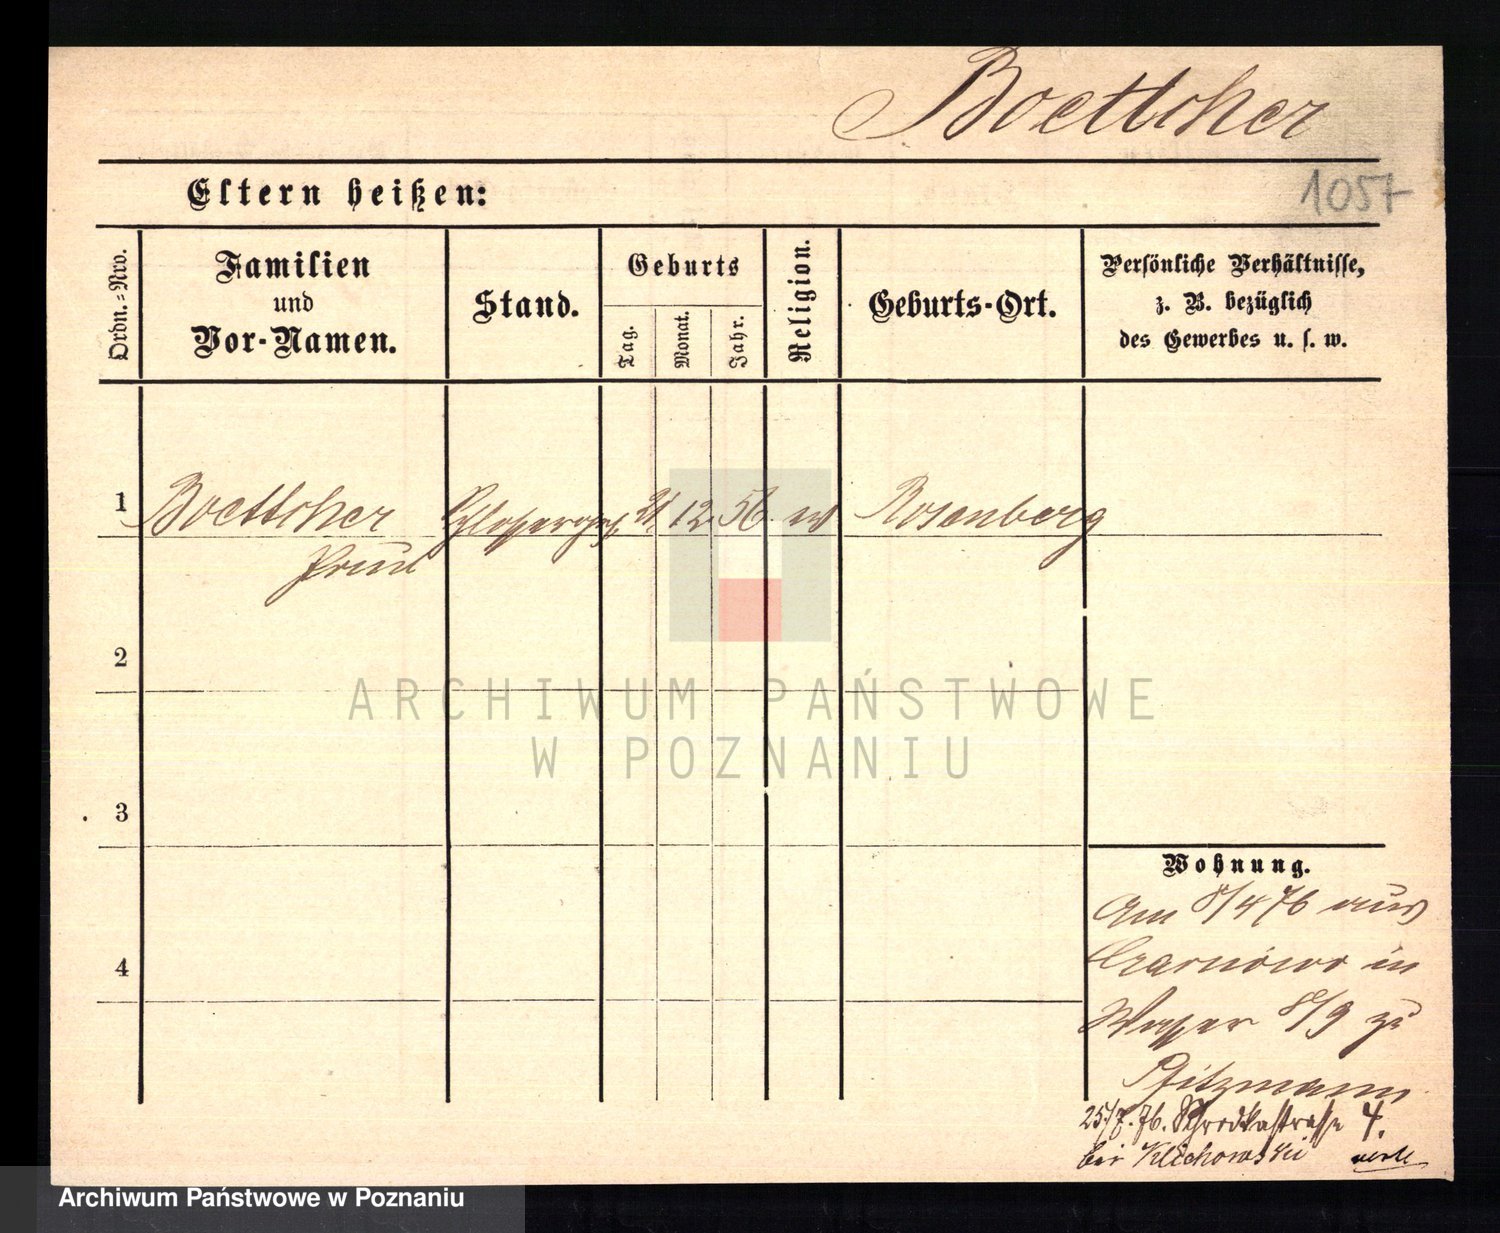 Boettcher
Eltern heißen:
1057
Ordn.=Nro.
Familien
und
Vor-Namen.
Stand.
Geburts
Tag.
Monat.
Jahr.
Religion.
Geburts-Ort.
Persönliche Verhältnisse,
z. B. bezüglich
des Gewerbes u. s. w.
1 Boettcher 21 12. 56. ev Rosenberg
Paul
2
ARCHIWUM PAŃSTWOWE
W POZNANIU
3
4
Wohnung.
Am 8/4 76 aus
Czarnowo in
8/9 zu
Pfitzmann
25/7. 76. Schrodkastrasse 4.
bei Klichowski
Archiwum Państwowe w Poznaniu